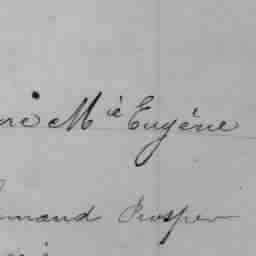 re Mie Eugène
mand Prosper